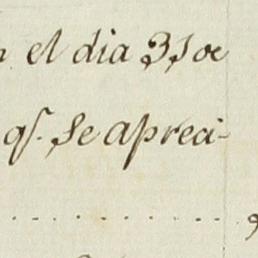 n el dia 31 de
qe. se apreci-